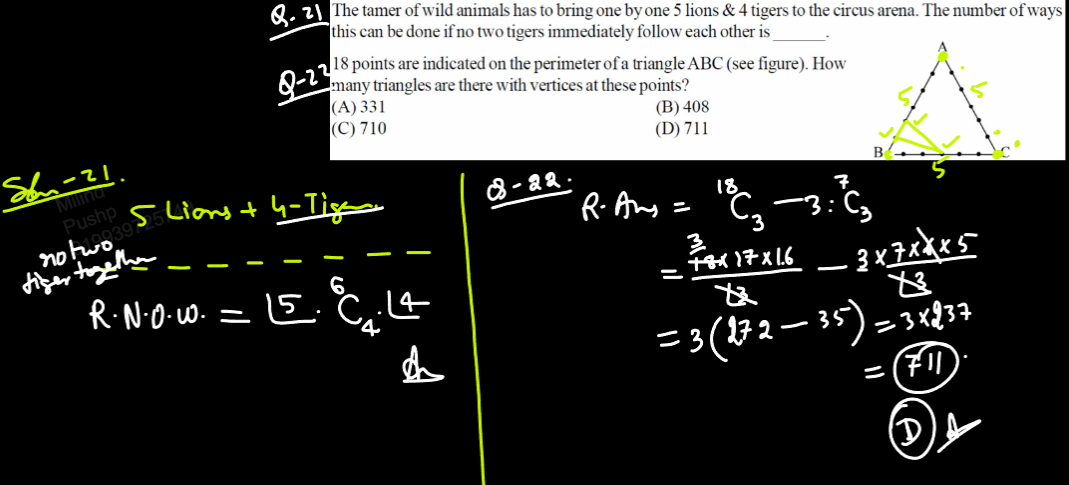 Q.21 The tamer of wild animals has to bring one by one 5 lions & 4 tigers to the circus arena. The number of ways
this can be done if no two tigers immediately follow each other is ______.
Q-22 18 points are indicated on the perimeter of a triangle ABC (see figure). How
many triangles are there with vertices at these points?
(A) 331 (B) 408
(C) 710 (D) 711
A
5 5
B C
5
Soln-21.
Milind
Pushp
5 Lions + 4-Tiger
no two
tiger together
R.N.O.W. = ⌊5 . ⁶C₄ . ⌊4
Q-22.
R. Ans = ¹⁸C₃ – 3 . ⁷C₃
= 3 18 x 17 x 16 / ⌊3 – 3 x 7 x 6 x 5 / ⌊3
= 3(272 – 35) = 3x237
= 711
D